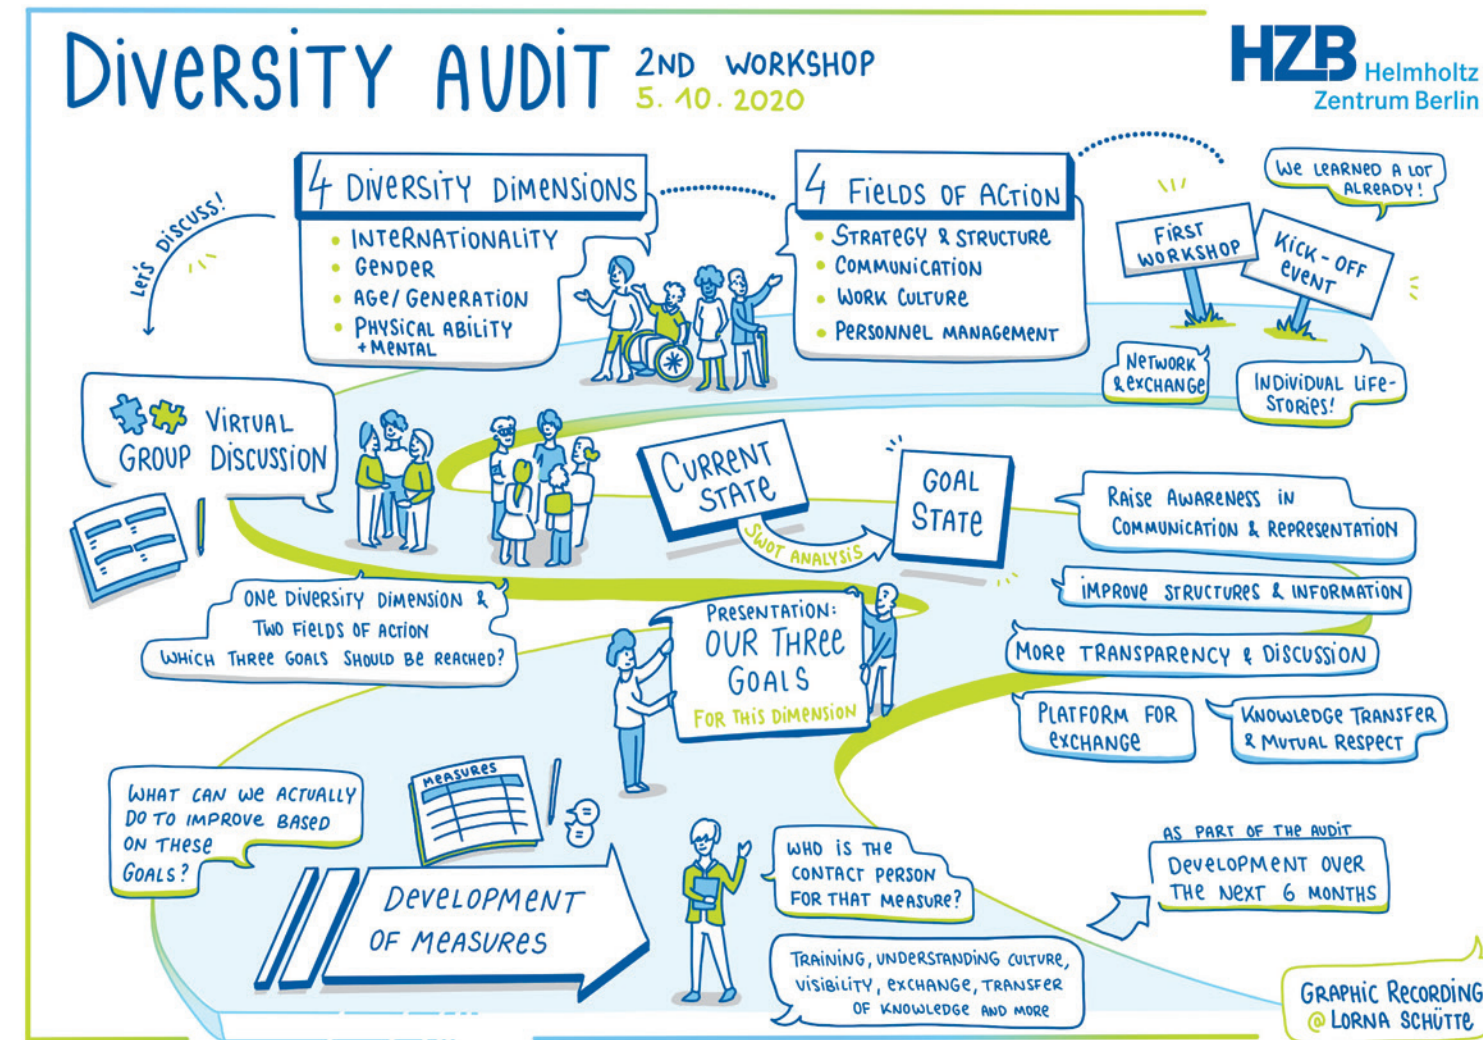 DIVERSITY AUDIT
2ND WORKSHOP
5. 10. 2020
HZB Helmholtz
Zentrum Berlin
LET'S DISCUSS!
4 DIVERSITY DIMENSIONS
• INTERNATIONALITY
• GENDER
• AGE/GENERATION
• PHYSICAL ABILITY
+ MENTAL
4 FIELDS OF ACTION
• STRATEGY & STRUCTURE
• COMMUNICATION
• WORK CULTURE
• PERSONNEL MANAGEMENT
FIRST
WORKSHOP
KICK-OFF
EVENT
WE LEARNED A LOT
ALREADY!
NETWORK
& EXCHANGE
INDIVIDUAL LIFE-
STORIES!
VIRTUAL
GROUP DISCUSSION
CURRENT
STATE
SWOT ANALYSIS
GOAL
STATE
RAISE AWARENESS IN
COMMUNICATION & REPRESENTATION
IMPROVE STRUCTURES & INFORMATION
MORE TRANSPARENCY & DISCUSSION
PLATFORM FOR
EXCHANGE
KNOWLEDGE TRANSFER
& MUTUAL RESPECT
ONE DIVERSITY DIMENSION &
TWO FIELDS OF ACTION
WHICH THREE GOALS SHOULD BE REACHED?
PRESENTATION:
OUR THREE
GOALS
FOR THIS DIMENSION
WHAT CAN WE ACTUALLY
DO TO IMPROVE BASED
ON THESE
GOALS?
MEASURES
DEVELOPMENT
OF MEASURES
WHO IS THE
CONTACT PERSON
FOR THAT MEASURE?
TRAINING, UNDERSTANDING CULTURE,
VISIBILITY, EXCHANGE, TRANSFER
OF KNOWLEDGE AND MORE
AS PART OF THE AUDIT
DEVELOPMENT OVER
THE NEXT 6 MONTHS
GRAPHIC RECORDING
@ LORNA SCHÜTTE